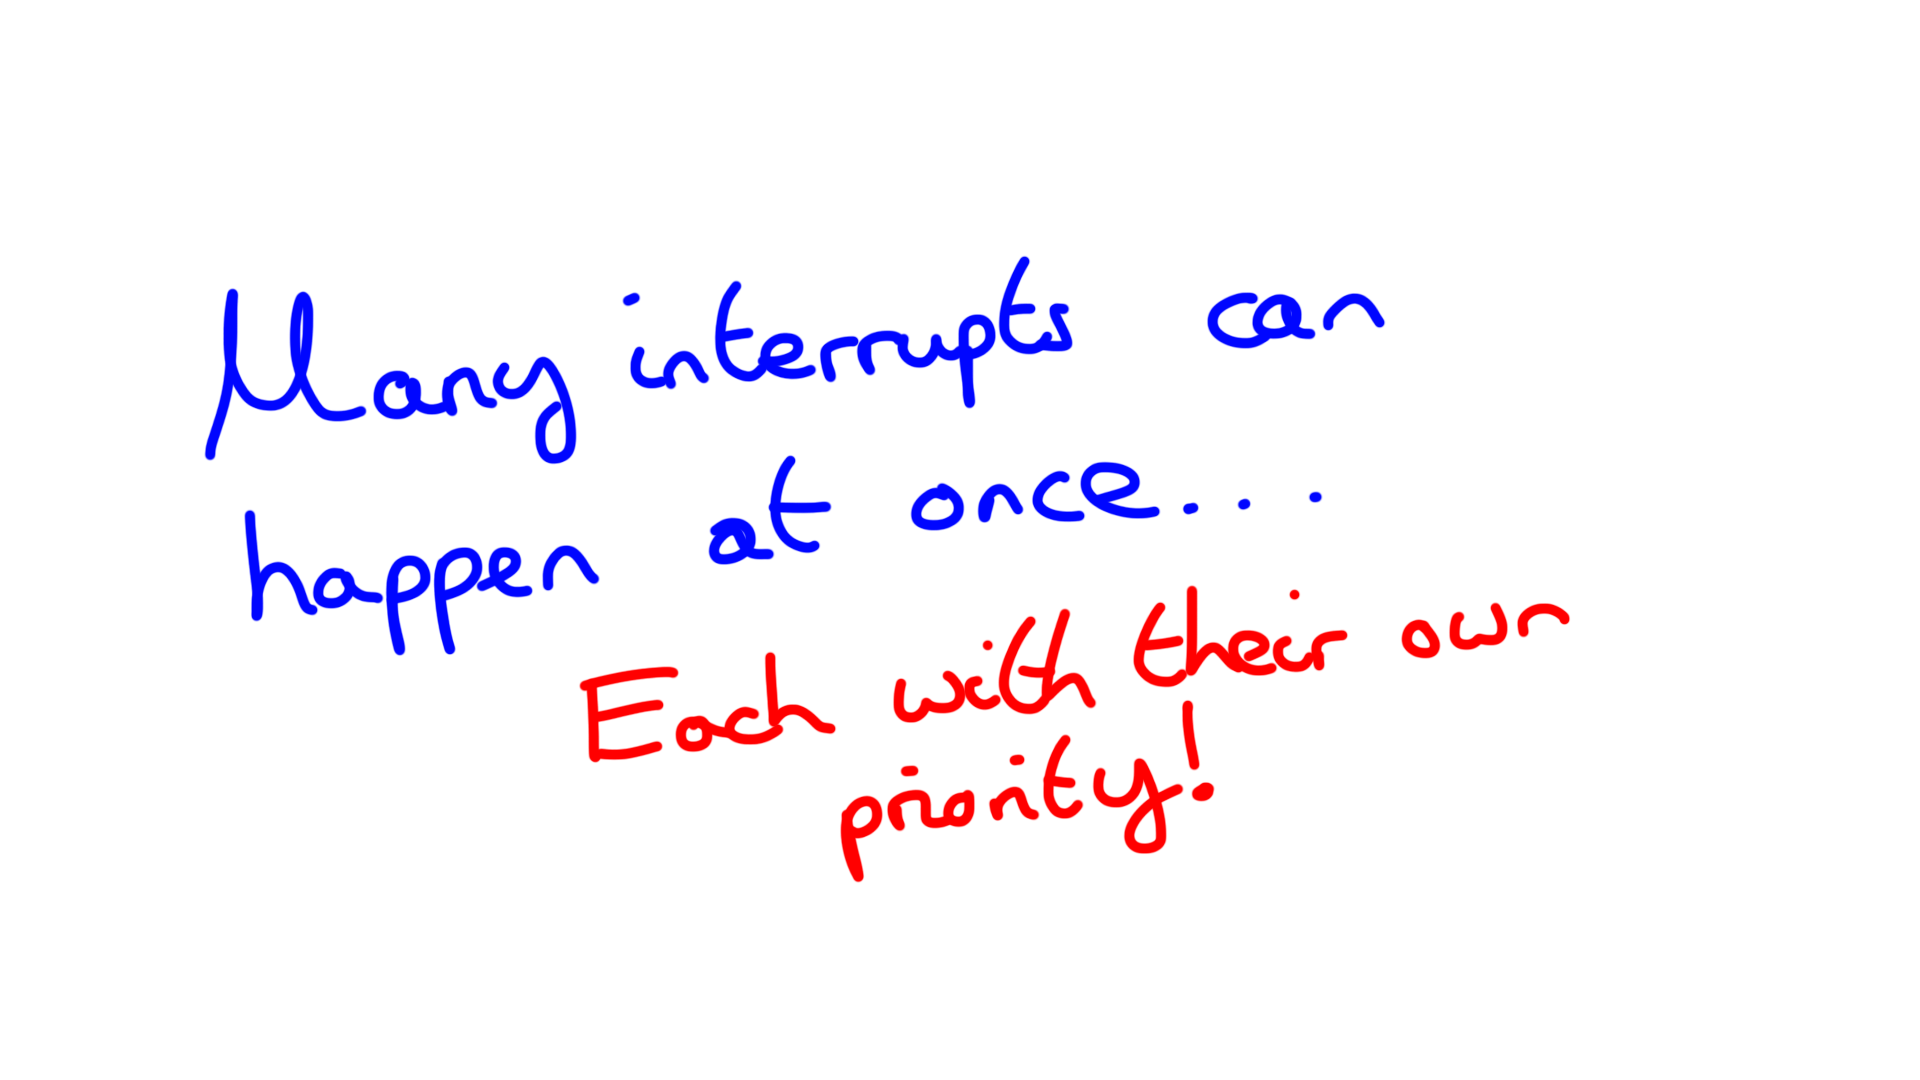 Many interrupts can
happen at once...
Each with their own
priority!